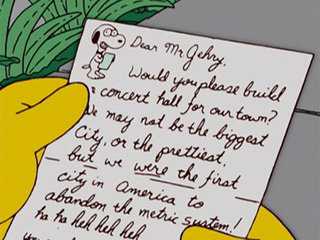 Dear Mr. Gehry,
Would you please build
a concert hall for our town?
We may not be the biggest
City, or the prettiest,
but we were the first
city in America to
abandon the metric system!
ha ha heh heh heh